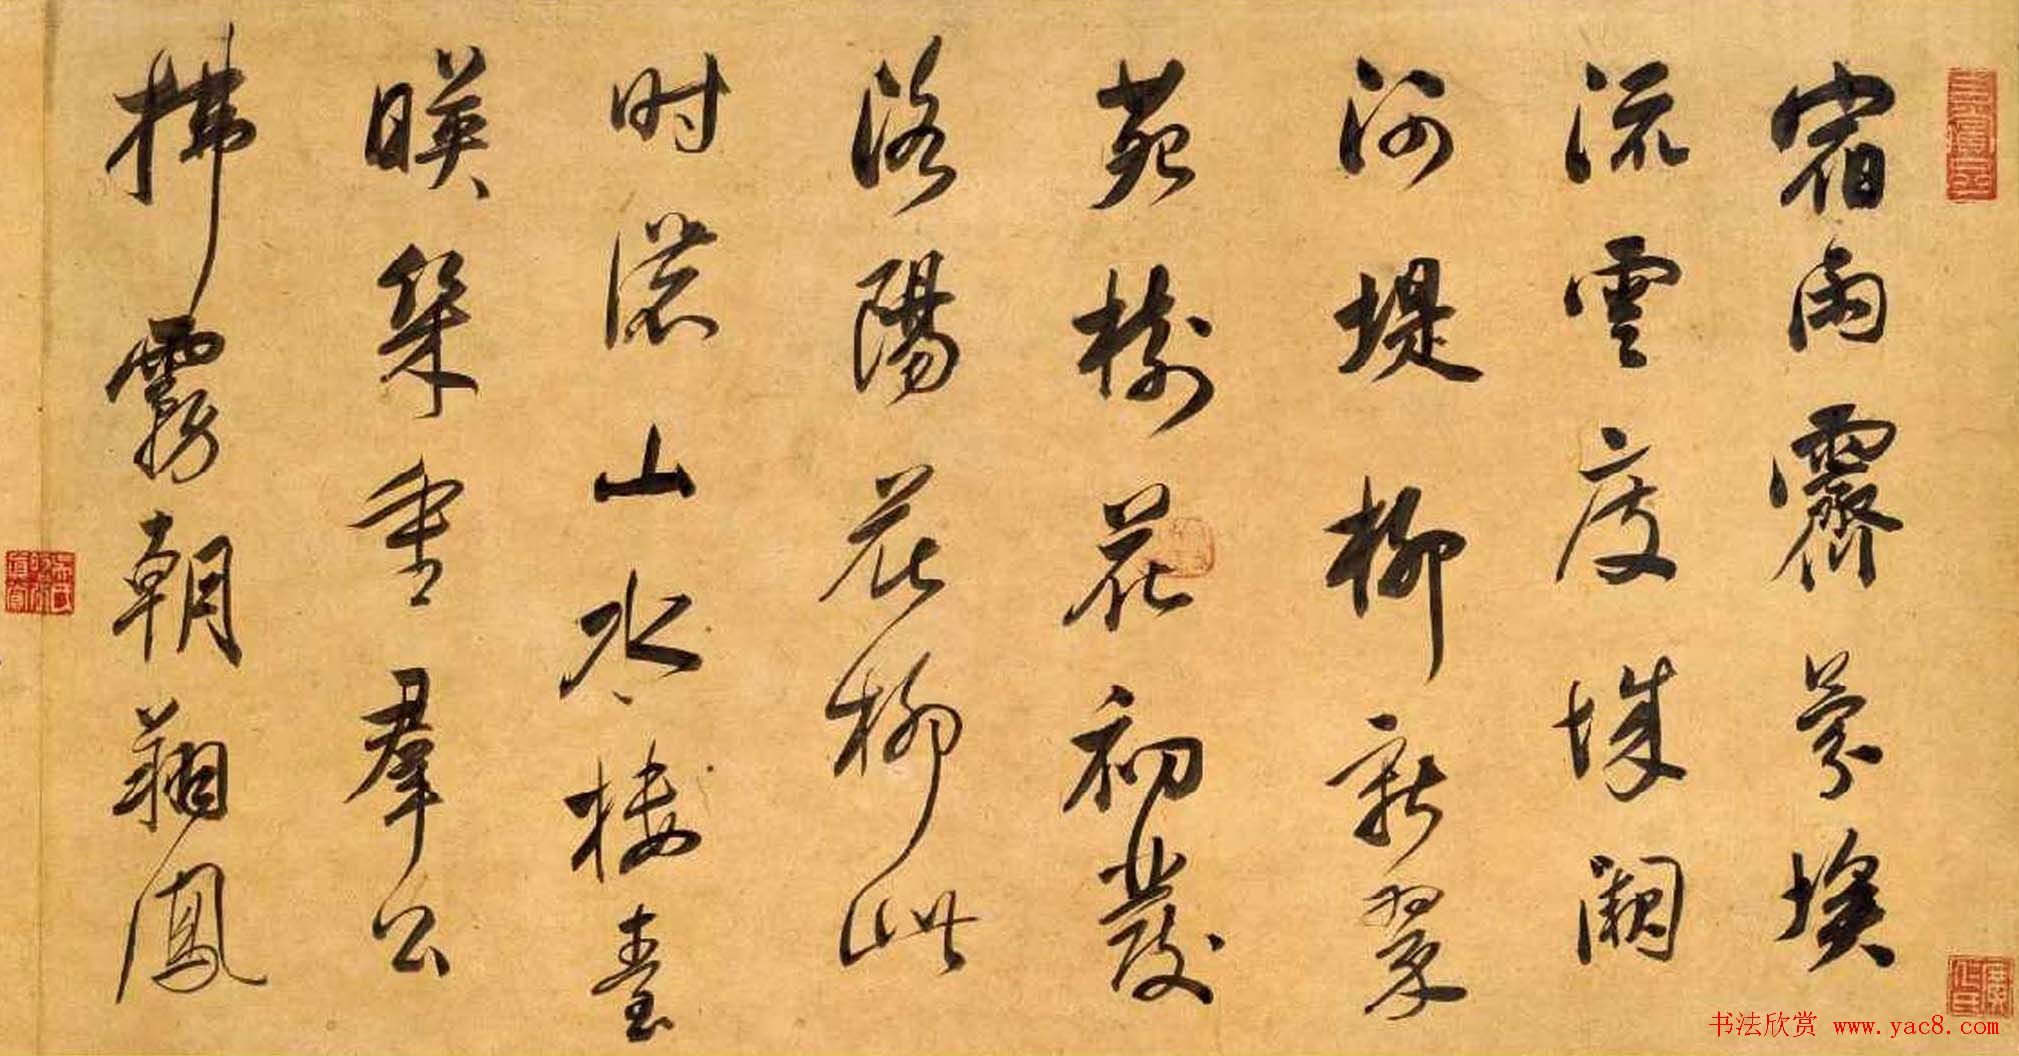 宿雨霽氛埃
流雲度城闕
河堤柳新翠
苑樹花初發
洛陽花柳此
时濃山水樓臺
暎幾重羣公
拂霧朝翔鳳
书法欣赏 www.yac8.com